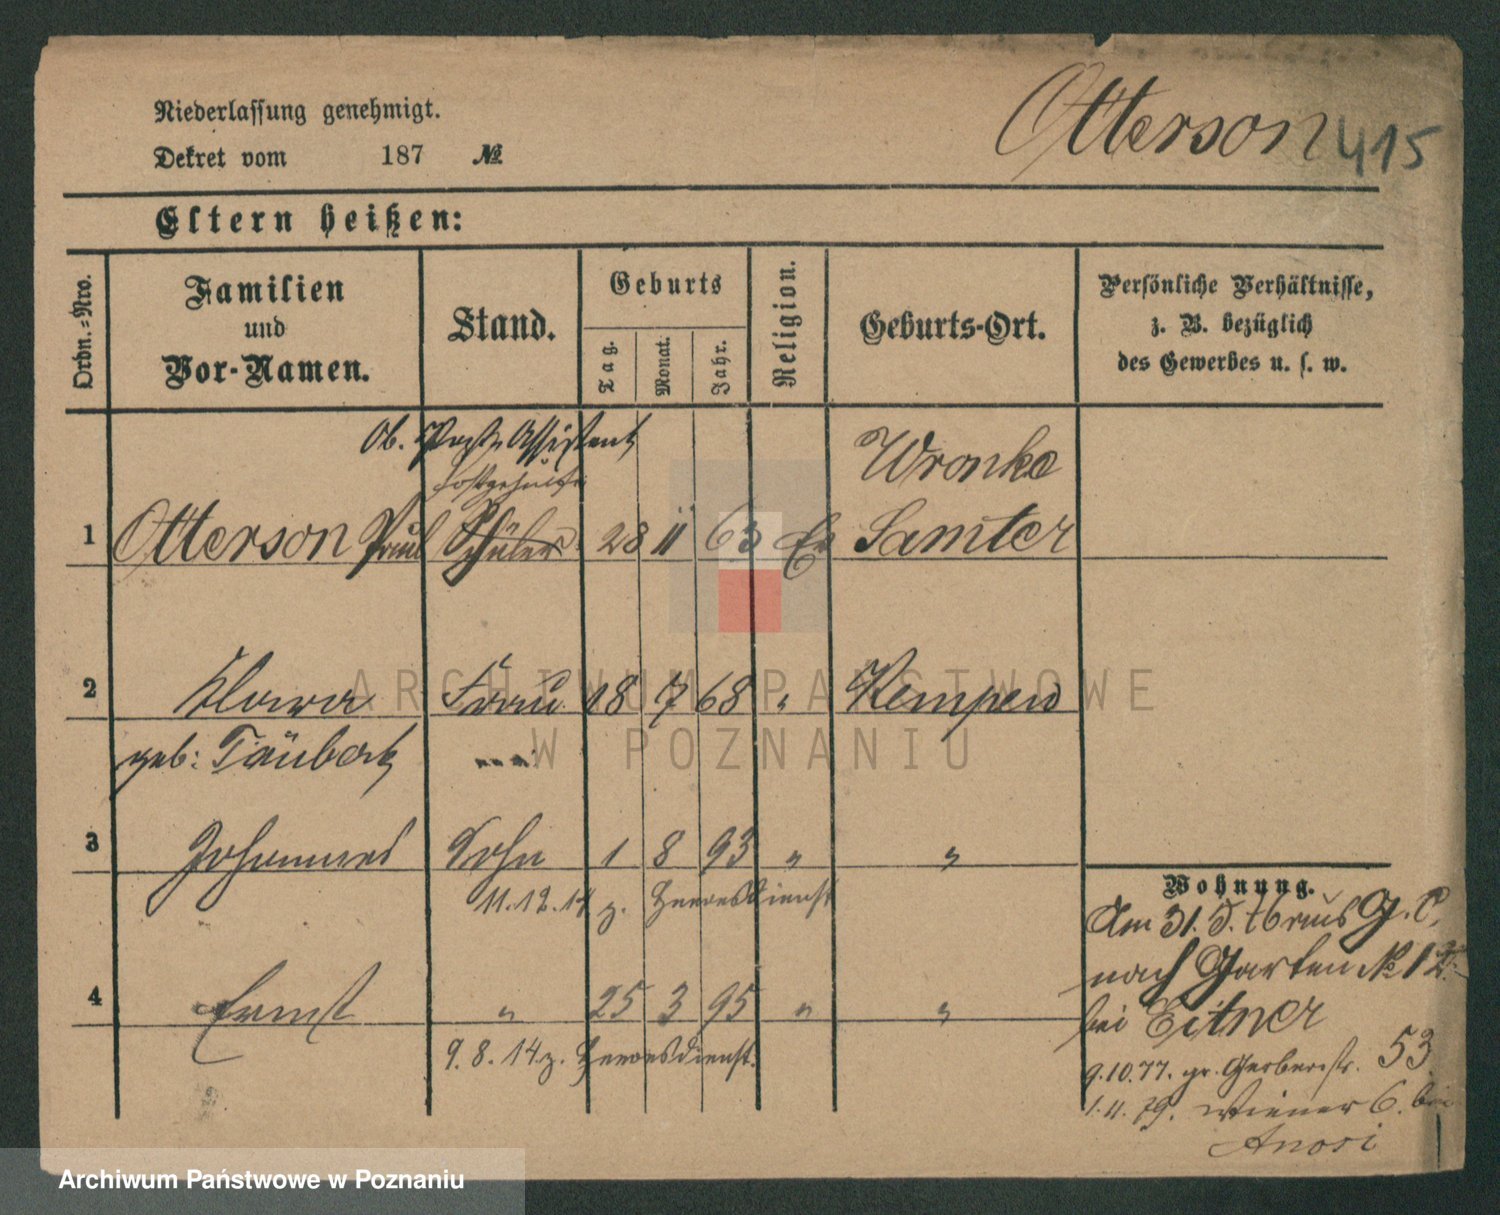 Otterson 415
Niederlassung genehmigt.
Dekret vom 187 №
Eltern heißen:
Ordn.=Nro.
Familien
und
Vor-Namen.
Stand.
Geburts
Tag.
Monat.
Jahr.
Religion.
Geburts-Ort.
Persönliche Verhältnisse,
z. B. bezüglich
des Gewerbes u. s. w.
Ob. Post Assistent
Postgehülfe
Wronke
1 Otterson Paul Schüler 28 11 63 Ev Samter
2 Klara Frau 18 7 68 " Kempen
geb: Täuber
3 Johannes Sohn 1 8 93 " "
11.12.14 z. Heeresdienst
4 Ernst " 25 3 95 " "
9.8.14 z. Heeresdienst.
Wohnung.
Am 31.
nach Garten № 12
bei Eitner
9.10.77. gr. Gerberstr. 53
1.11.79. Wiener 6. bei
Anosi
ARCHIWUM PAŃSTWOWE
W POZNANIU
Archiwum Państwowe w Poznaniu